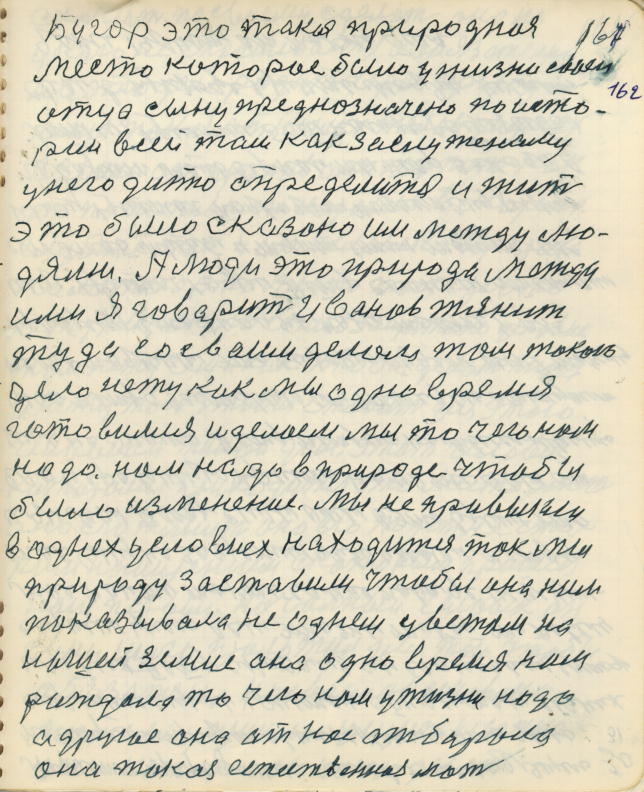 Бугор это такая природная 167
место которое было у жизни своей
162
отца сыну преднозначено по исто-
рии всей там как заслуженаму
у него дитю определится и жит
это было сказоно им между лю-
дями. А люди это природа между
ими я говарит Иванов тянит
туда со сваим делом, там такого
дело нету как мы одно время
готовимся и делаем мы то чего нам
надо. нам надо в природе чтобы
было изменение. Мы не привыкли
в однех условиех находится так мы
природу заставили чтобы она нам
показывала не однем цветам на
нашей земле она одно время нам
раждала то чего нам у жизни надо
а другое она от нас отбарала
она такая естественная мат